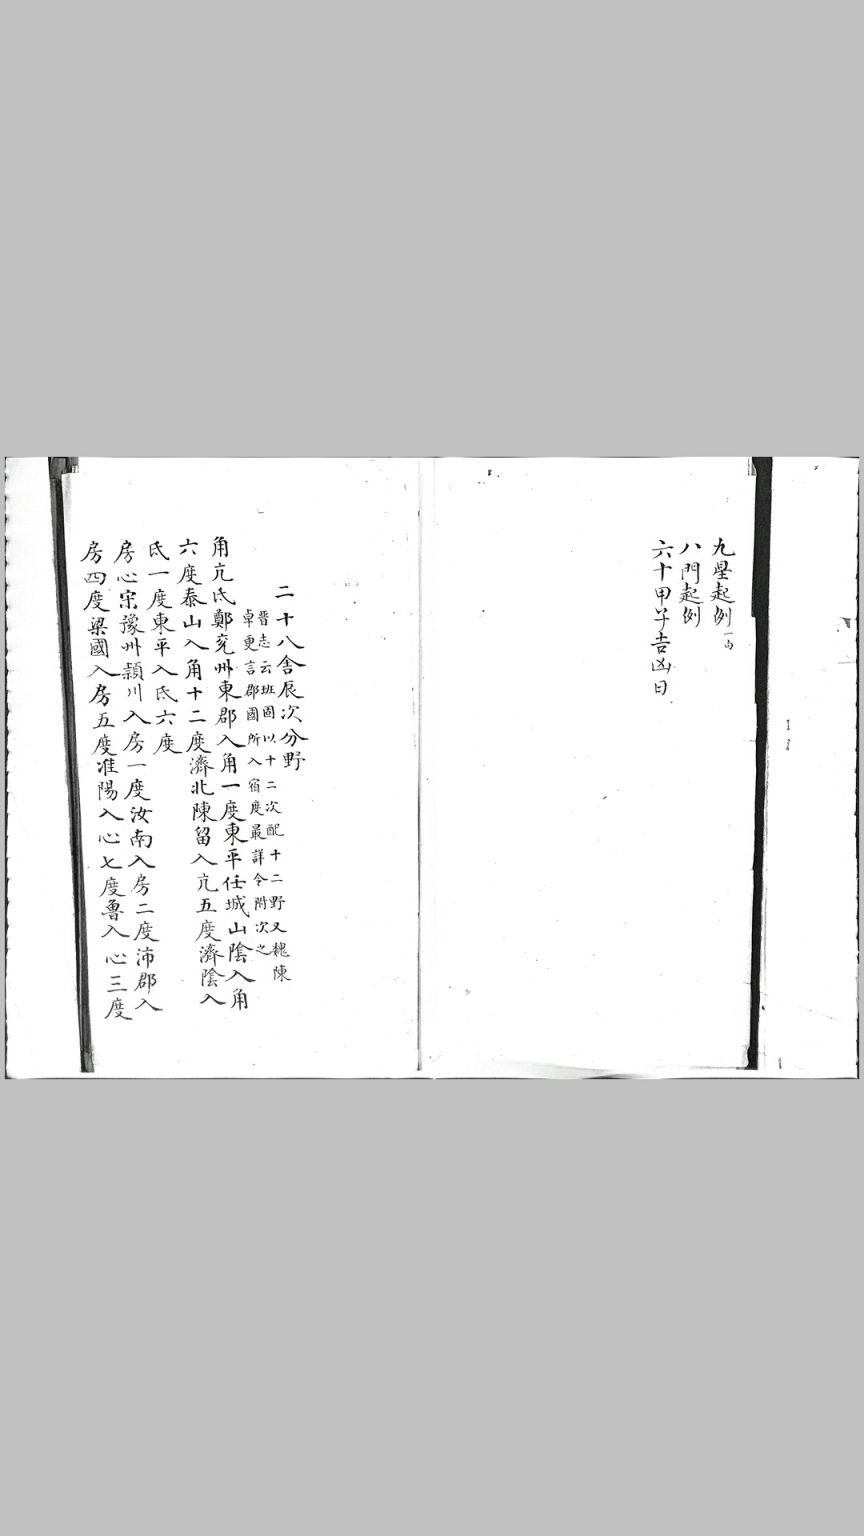 九星起例
八門起例
六十甲子吉凶日
二十八舍辰次分野
晋志云班固以十二次配十二野又魏陳
卓更言郡國所入宿度最詳今附次之
角亢氐鄭兖州東郡入角一度東平任城山陰入角
六度泰山入角十二度濟北陳留入亢五度濟陰入
氐一度東平入氐六度
房心宋豫州頴川入房一度汝南入房二度沛郡入
房四度梁國入房五度淮陽入心七度魯入心三度